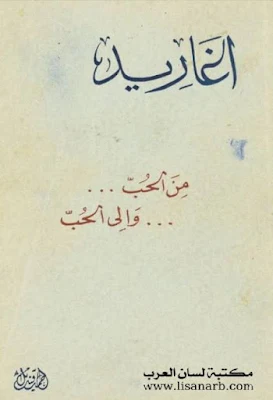 اغاريد
مِنَ الحُبّ ...
... وَإلى الحُبّ
مكتبة لسان العرب
www.lisanarb.com